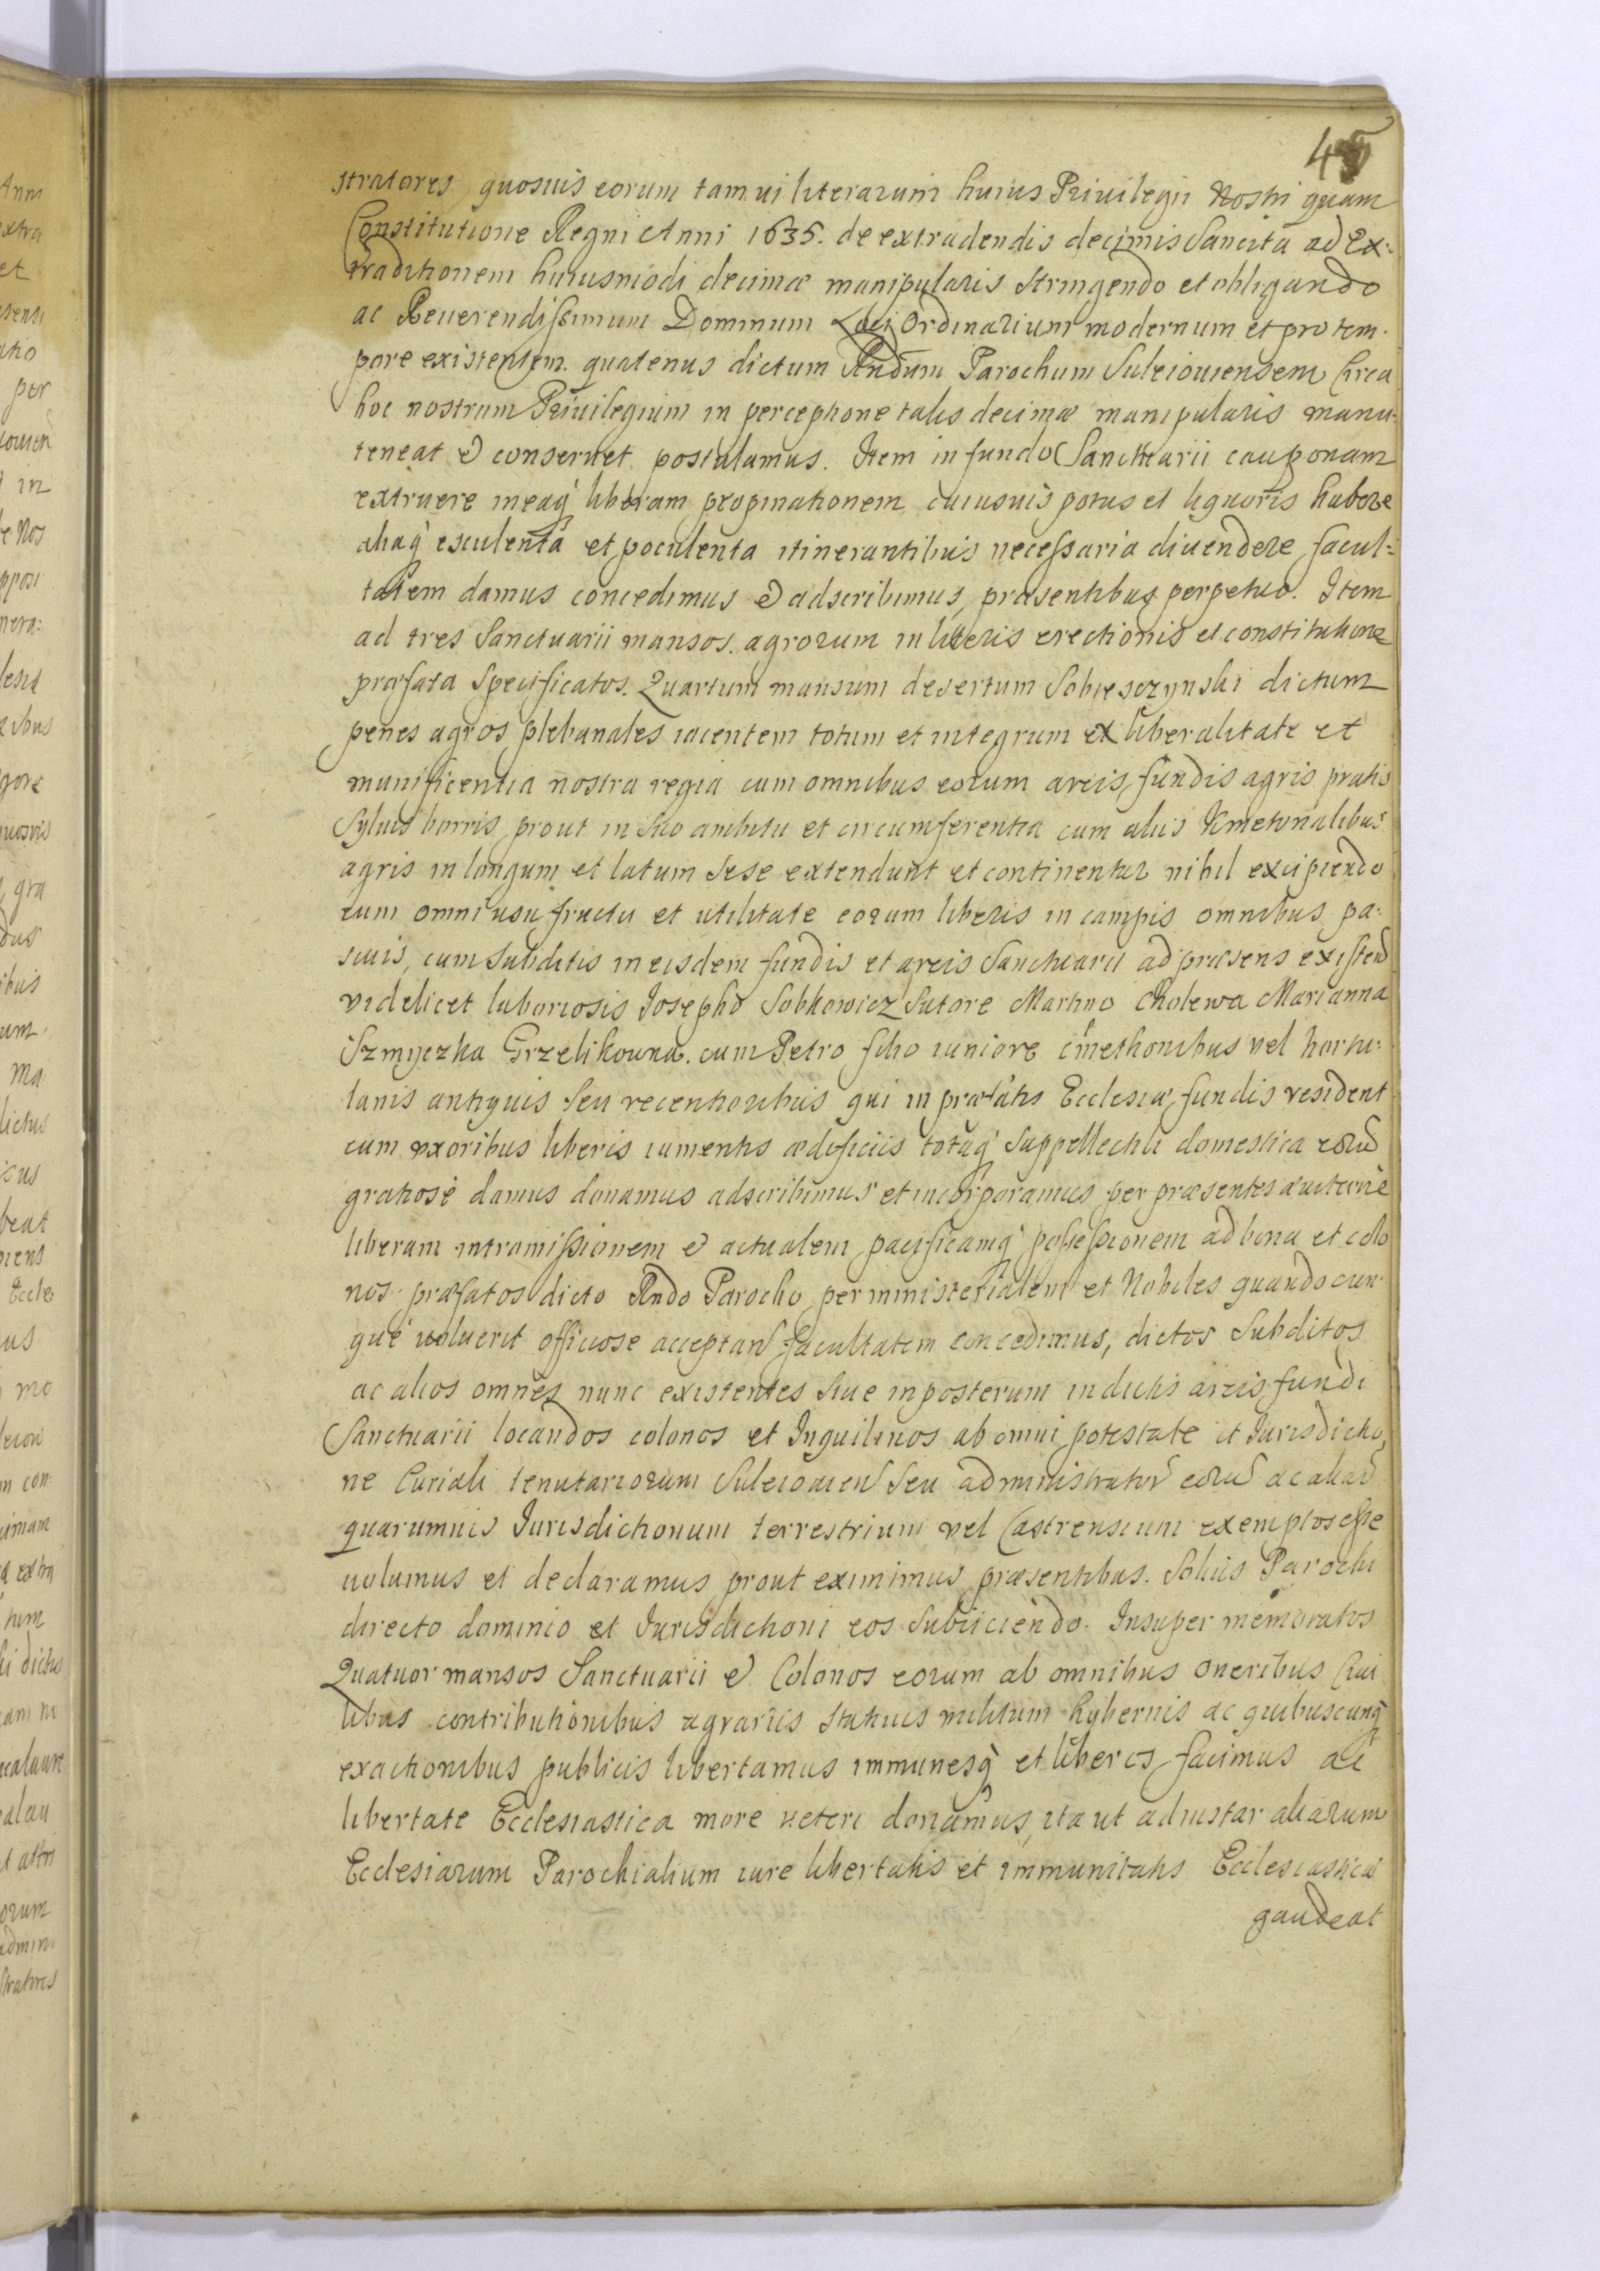 45
stratores quosuis eorum tam ui literarum huius Priuilegii Nostri quam
Constitutione Regni Anni 1635. de extradendis decimis Sancita ad Ex-
traditionem huiusmodi decimæ manipularis stringendo et obligando
ac Reuerendissimum Dominum Loci Ordinarium modernum et pro tem-
pore existentem. quatenus dictum Rndum Parochum Suleiouiensem Circa
hoc nostrum Priuilegium in perceptione talis decimæ manipularis manu-
teneat & conseruet postulamus. Item in fundo Sanctuarii cauponam
extruere ineaq' liberam propinationem cuiusuis potus et liquoris habere
aliaq' esculenta et poculenta itinerantibus necessaria diuendere facul-
tatem damus concedimus & adscribimus, præsentibus perpetuo. Item
ad tres Sanctuarii mansos. agrorum in literis erectionis et constitutione
præfata Specificatos. Quartum mansum desertum Sobiesczynski dictum
penes agros plebanales iacentem totum et integrum ex liberalitate et
munificentia nostra regia cum omnibus eorum areis, fundis agris pratis
Syluis borris prout in suo ambitu et circumferentia cum aliis Kmetonalibus
agris in longum et latum sese extendunt et continentur nihil excipiendo
cum omni usu fructu et utilitate eorum liberis in campis omnibus pa-
scuis, cum subditis in eisdem fundis et areis Sanctuarii ad præsens existen
videlicet laboriosis Josepho Sobkowicz Sutore Martino Cholewa Marianna
Szmyczka Grzelikowna. cum Petro filio iuniore cmethonibus vel hortu-
lanis antiquis seu recentioribus qui in præfatis Ecclesiæ fundis resident
cum uxoribus liberis iumentis ædificiis totaq' Suppellectili domestica eorū
gratiosè damus donamus adscribimus et incorporamus per præsentes æuiternè
liberam intromissionem & actualem pacificamq' possessionem ad bona et colo
nos præfatos dicto Rndo Parocho per ministerialem et Nobiles quandocun-
què uoluerit officiose acceptan facultatem concedimus, dictos Subditos
ac alios omnes nunc existentes siue in posterum in dictis areis fundi
Sanctuarii locandos colonos et Inquilinos ab omni potestate et Jurisdictio
ne Curiali tenutariorum Suleiouien seu administrator eorū ac aliarū
quarumuis Jurisdictionum terrestrium vel Castrensium exemptos esse
uolumus et declaramus prout eximimus præsentibus. Solius Parochi
directo dominio et Jurisdictioni eos subiiciendo. Insuper memoratos
Quatuor mansos Sanctuarii & Colonos eorum ab omnibus oneribus Ciui
libus contributionibus agrariis statiuis militum hybernis ac quibuscunq'
exactionibus publicis libertamus immunesq' et liberos facimus ac
libertate Ecclesiastica more ueteri donamus, ita ut ad instar aliarum
Ecclesiarum Parochialium iure libertatis et immunitatis Ecclesiasticæ
gaudeat